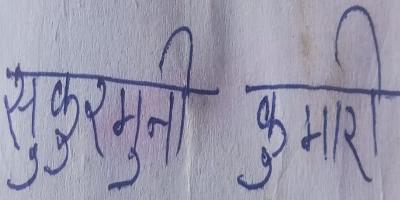 सुकुरमुनी कुमारी